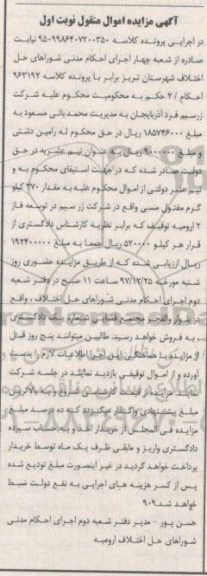 آگهی مزایده اموال منقول نوبت اول
در اجرایی پرونده کلاسه ۹۵۰۹۹۸۶۴۰۷۲۰۰۳۵۰ نیابت
صادره از شعبه چهار اجرای احکام مدنی شوراهای حل
اختلاف شهرستان تبریز برابر با پرونده کلاسه ۹۶۳۱۹۲
احکام / ۲ حکم به محکومیت محکوم علیه شرکت
زرسیم فرد آذربایجان به مدیریت محمد بانی مسعود به
مبلغ ۱۸۵۷۴۶۰۰۰ ریال در حق محکوم له رامین دشتی
و مبلغ ۹۰۰۰۰۰۰ ریال به عنوان نیم عشریه در حق
دولت صادر شده که در جهت استیفای محکوم به و
نیم عشر دولتی از اموال محکوم علیه به مقدار ۳۷۰ کیلو
گرم مفتول مسی واقع در شرکت زر سیم در توسعه فاز
۲ ارومیه توقیف که برابر نظریه کارشناس دادگستری از
قرار هر کیلو ۵۲۰۰۰۰ ریال جمعا به مبلغ ۱۹۲۴۰۰۰۰۰
ریال ارزیابی شده که از طریق مزایده حضوری روز
شنبه مورخه ۹۷/۱۲/۲۵ ساعت ۱۱ صبح در دفتر شعبه
دوم اجرای احکام مدنی شوراهای حل اختلاف واقع
در مجتمع قضایی شماره یک دادگستری
به فروش خواهد رسید. طالبین میتوانند پنج روز قبل
از مزایده با هماهنگی این اجرا اطلاعات لازم را بدست
آورده و از اموال توقیفی بازدید نمایند در جلسه شرکت
نمایند. مزایده از قیمت کارشناسی شروع و به بالاترین
مبلغ پیشنهادی واگذار میگردد که ده درصد مبلغ
مزایده فی المجلس از خریدار اخذ و به حساب سپرده
دادگستری واریز و مابقی ظرف یک ماه توسط خریدار
پرداخت خواهد گردید در غیر اینصورت مبلغ تودیع شده
پس از کسر هزینه های اجرایی به نفع دولت ضبط
خواهد شد.۹۰۹
حسن پور - مدیر دفتر شعبه دوم اجرای احکام مدنی
شوراهای حل اختلاف ارومیه